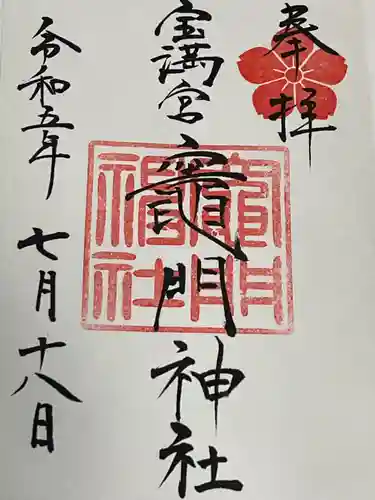 奉拝
宝満宮
竈門神社
竈門神社
令和五年
七月十八日